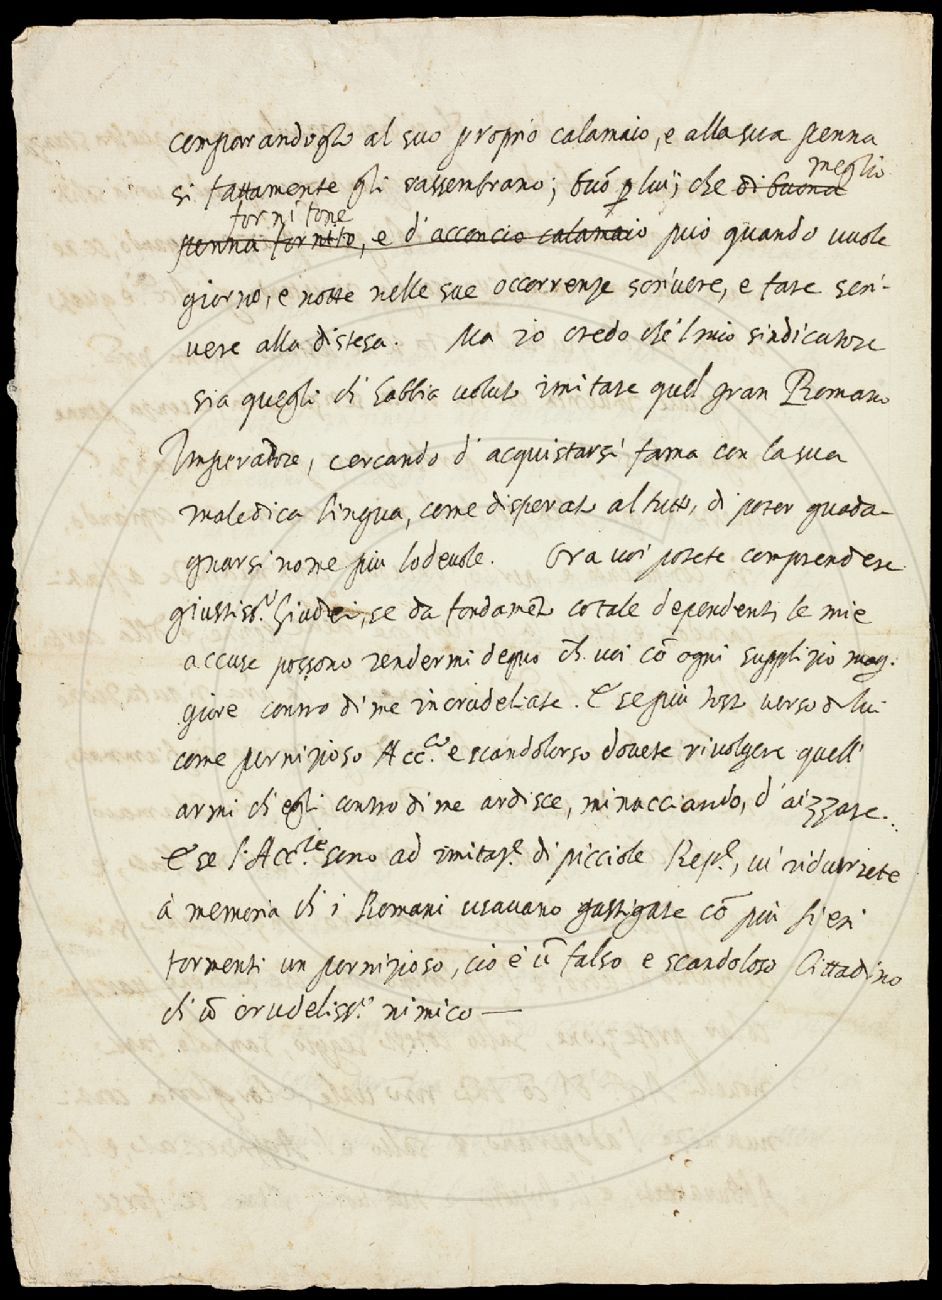 comparandogli al suo proprio calamaio, e alla sua penna
meglio
si fattamente gli rassembrano; buō p lui; che di buona
fornitone
penna fornito, e d'acconcio calamaio può quando vuole
giorno, e notte nelle sue occorrenze scrivere, e fare scri-
vere alla distesa. Ma io credo che'l mio sindicatore
sia quegli ch habbia voluto imitare quel gran Romano
Imperadore, cercando d'acquistarsi fama con la sua
maledica lingua, come disperato al tutto, di poter guada-
gnarsi nome più lodevole. Ora voi potete comprendere
giustiss.i Giudici, se da fondamēto cotale dependenti le mie
accuse possono rendermi degno ch. voi cō ogni supplizio mag-
giore contro di me incrudeliate. E se più tosto verso di lui
come pernizioso Acc.co e scandoloso dovete rivolgere quell'
armi ch egli contro di me ardisce, minacciando, d'aizzare.
E se l'Acc.ie sono ad imitaz.e di picciole Rep.e, vi ridurrete
à memoria ch i Romani usavano gastigare cō più fieri
tormenti un pernizioso, ciò è ū falso e scandoloso Cittadino
ch ū crudeliss.o nimico —